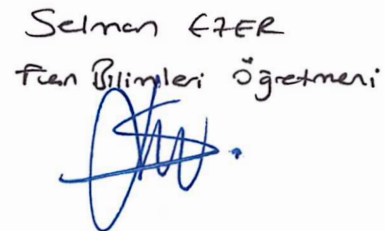 Selman EZER
Fen Bilimleri Öğretmeni